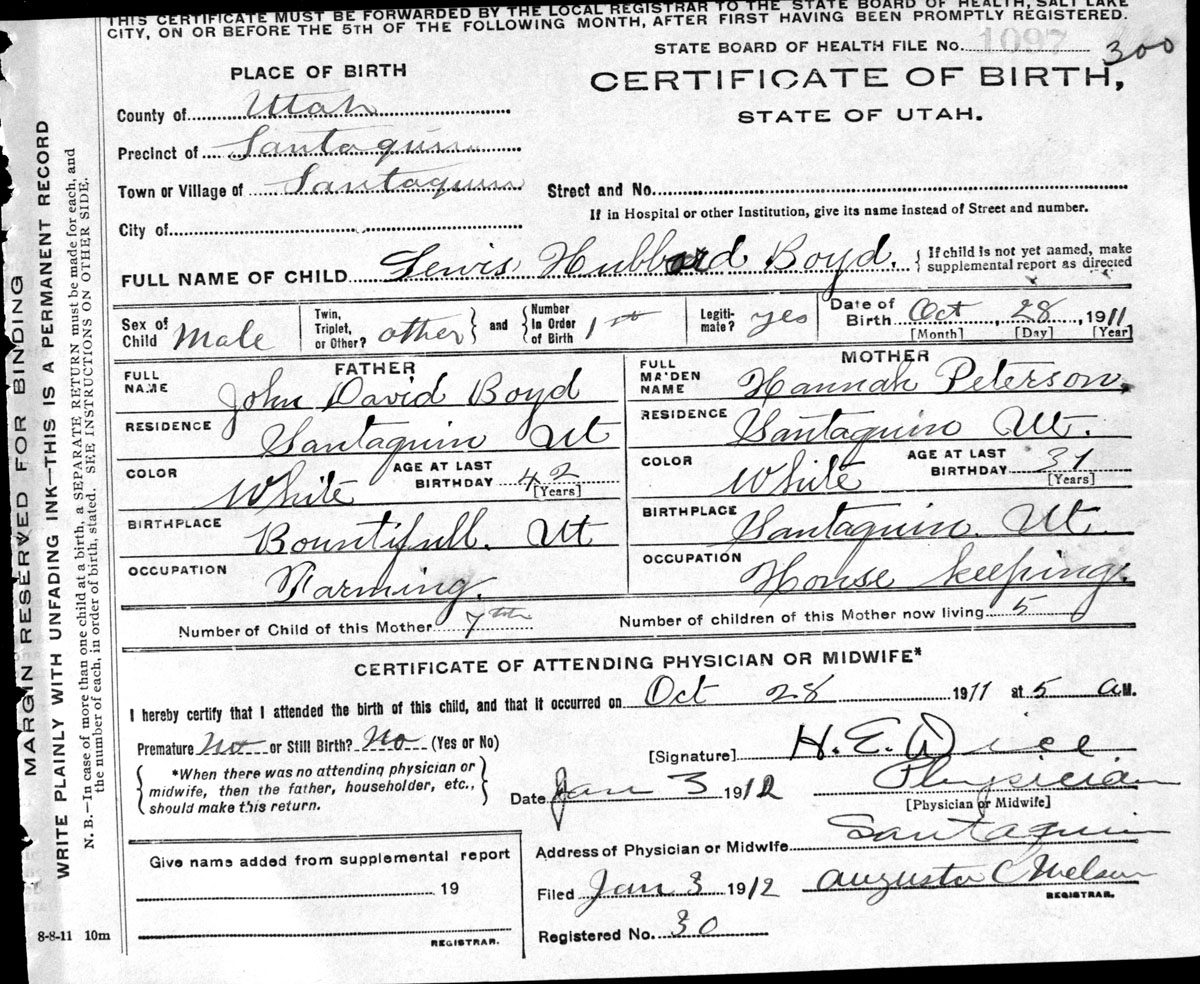 THIS CERTIFICATE MUST BE FORWARDED BY THE LOCAL REGISTRAR TO THE STATE BOARD OF HEALTH, SALT LAKE
CITY, ON OR BEFORE THE 5TH OF THE FOLLOWING MONTH, AFTER FIRST HAVING BEEN PROMPTLY REGISTERED.
STATE BOARD OF HEALTH FILE No. 1097 300
PLACE OF BIRTH
CERTIFICATE OF BIRTH,
STATE OF UTAH.
County of Utah
Precinct of Santaquin
Town or Village of Santaquin Street and No.
If in Hospital or other Institution, give its name instead of Street and number.
City of
FULL NAME OF CHILD Lewis Hubbard Boyd. { If child is not yet named, make
supplemental report as directed
Sex of Child Male Twin, Triplet, or Other? other } and { Number in Order of Birth 1st Legiti-mate? yes Date of Birth Oct 28, 1911
[Month] [Day] [Year]
FATHER MOTHER
FULL NAME John David Boyd FULL MAIDEN NAME Hannah Peterson.
RESIDENCE Santaquin Ut RESIDENCE Santaquin Ut.
COLOR White AGE AT LAST BIRTHDAY 42 [Years] COLOR White AGE AT LAST BIRTHDAY 37 [Years]
BIRTHPLACE Bountifull. Ut BIRTHPLACE Santaquin. Ut
OCCUPATION Farming. OCCUPATION House keeping.
Number of Child of this Mother 7th Number of children of this Mother now living 5
CERTIFICATE OF ATTENDING PHYSICIAN OR MIDWIFE*
I hereby certify that I attended the birth of this child, and that it occurred on Oct 28 1911 at 5 a M.
Premature No or Still Birth? No (Yes or No)
[Signature] H. E.
*When there was no attending physician or
midwife, then the father, householder, etc.,
should make this return.
Date Jan 3 1912 Physician
[Physician or Midwife]
Address of Physician or Midwife Santaquin
Give name added from supplemental report
19
REGISTRAR.
Filed Jan 3 1912 Augusta C Nelson
REGISTRAR.
Registered No. 30
8-8-11 10m
MARGIN RESERVED FOR BINDING
WRITE PLAINLY WITH UNFADING INK—THIS IS A PERMANENT RECORD
N. B.—In case of more than one child at a birth, a SEPARATE RETURN must be made for each, and
the number of each, in order of birth, stated. SEE INSTRUCTIONS ON OTHER SIDE.